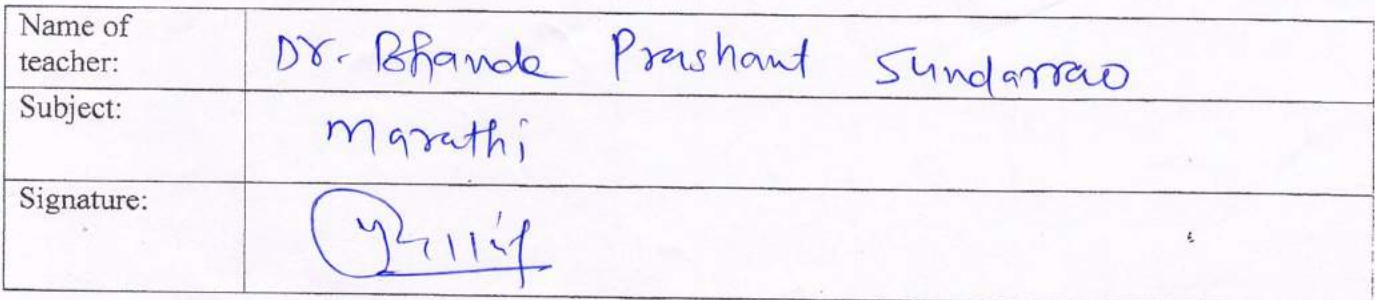 Name of
teacher:
Dr. Bhande Prashant Sundarrao
Subject:
Marathi
Signature: